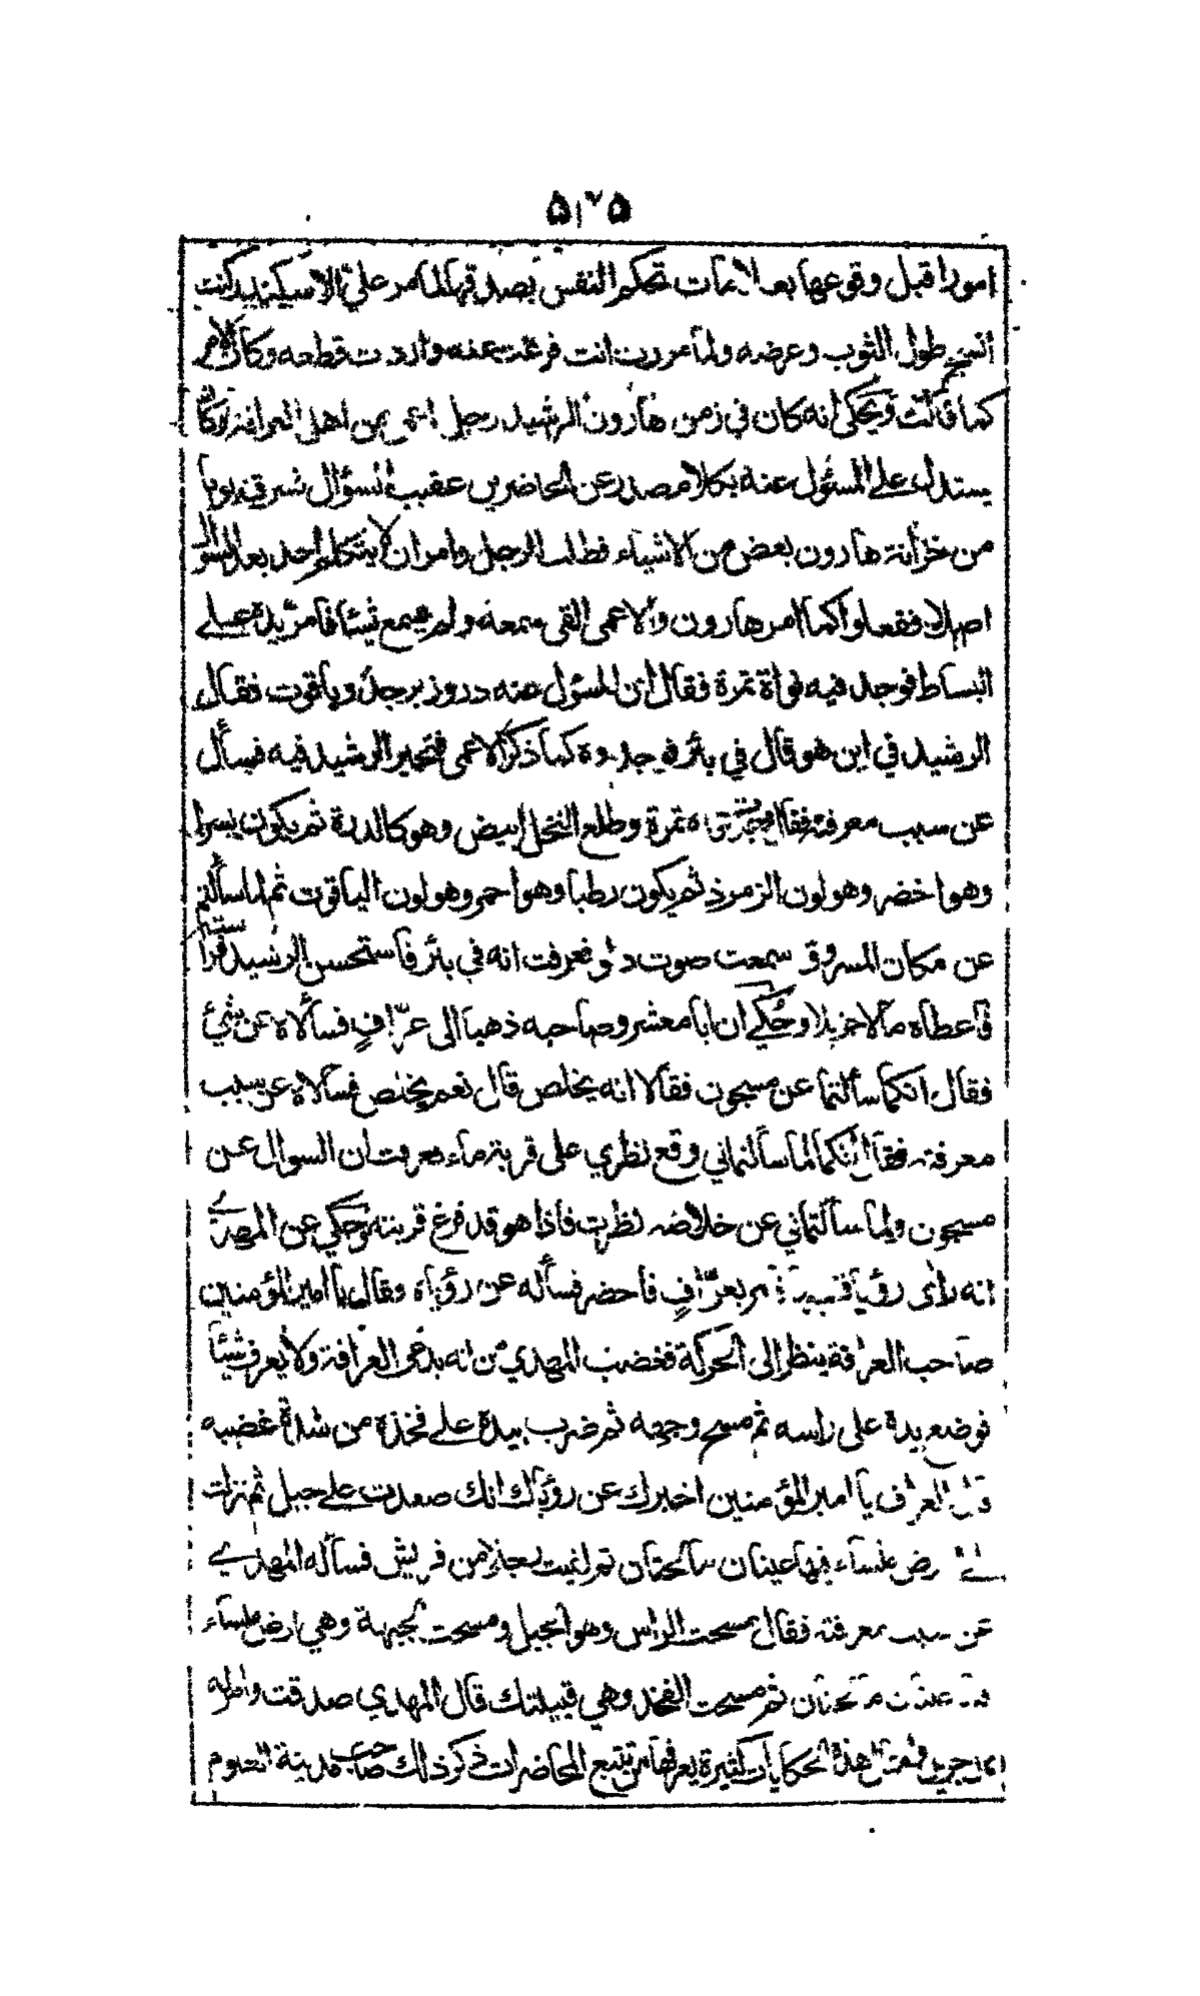 امورا قبل وقوعها بعلامات تحكم النفس بصدقها لما مر على الاسكندر كنت
انسج طول الثوب وعرضه ولما مررت انت فرغت عنه واردت قطعه وكان الامر
كما قالت ويحكى انه كان في زمن هارون الرشيد رجل اعمى من اهل العرافة وكان
يستدل على المسئول عنه بكلام صدر عن الحاضرين عقيب السؤال شرق يوما
من خزانة هارون بعض من الاشياء فطلب الرجل وامر ان لا يتكلم احد بعد السؤال
اصلا ففعلوا كما امر هارون والاعمى القى سمعه ولم يسمع شيئا فامر يده على
البساط فوجد فيه نواة تمرة فقال ان المسئول عنه در وزبرجد وياقوت فقال
الرشيد في اين هو قال في بئر فوجدوه كما ذكر الاعمى فتحير الرشيد فيه فسأل
عن سبب معرفته فقال نواة تمرة وطلع النخل ابيض وهو كالدرة ثم يكون بسرا
وهو اخضر وهو لون الزمرذ ثم يكون رطبا وهو احمر وهو لون الياقوت ثم لما سألتم
عن مكان المسروق سمعت صوت دلو فعرفت انه في بئر فاستحسن الرشيد فراسته
فاعطاه مالا جزيلا وحُكي ان ابا معشر وصاحبه ذهبا الى عرّافٍ فسألاه عن شئ
فقال انكما سألتما عن مسجون فقالا انه يخلص قال نعم يخلص فسألاه عن سبب
معرفته فقال انكما لما سألتماني وقع نظري على قربة ماء فعرفت ان السوال عن
مسجون ولما سألتماني عن خلاصه نظرت فاذا هو قد فرغ قربته وحكي عن المهدي
انه رأى رؤيا بعرّافٍ فأحضر فسأله عن رؤياه وقال يا امير المؤمنين
صاحب العرافة ينظر الى الحركة فغضب المهدي من انه يدعى العرافة ولا يعرف شيئا
فوضع يده على راسه ثم مسح وجهه ثم ضرب بيده على فخذه من شدة غضبه
العراف يا امير المؤمنين اخبرك عن رؤياك انك صعدت على جبل ثم نزلت
ملساء فيها عينان مالحتان ثم لقيت رجلا من قريش فسأله المهدي
عن سبب معرفته فقال مسحت الراس وهو الجبل ومسحت الجبهة وهي ارض ملساء
عينان مالحتان ثم مسحت الفخذ وهي قبيلتك قال المهدي صدقت وامر له
هذه الحكايات كثيرة يعرفها من تتبع المحاضرات ذكر ذلك صاحب مدينة العلوم